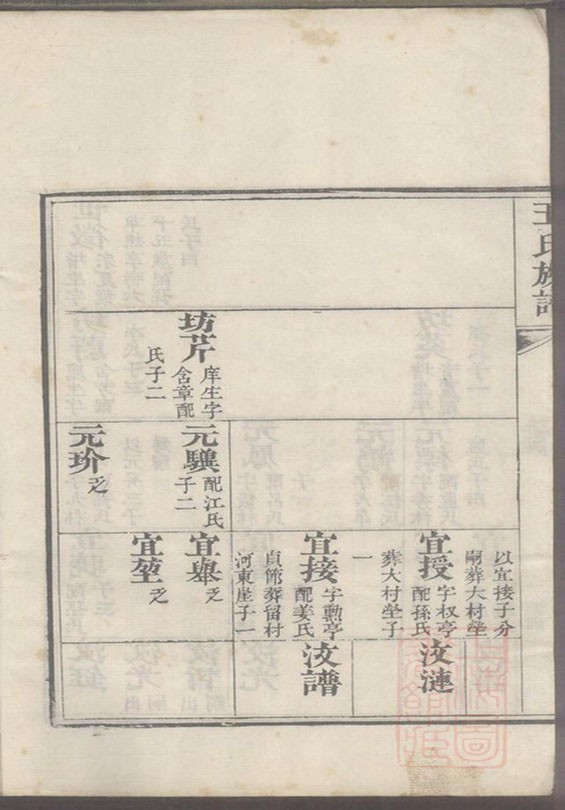 王氏族譜
坊芹
庠生字
含章配
氏子二
元驥
配江氏
子二
元玠
乏
以宜接子分
嗣葬大村塋
宜授
字权亭
配孫氏
葬大村塋子
一
宜接
字勳亭
配姜氏
貞節葬留村
河東崖子一
宜舉
乏
宜堃
乏
汶漣
汶譜